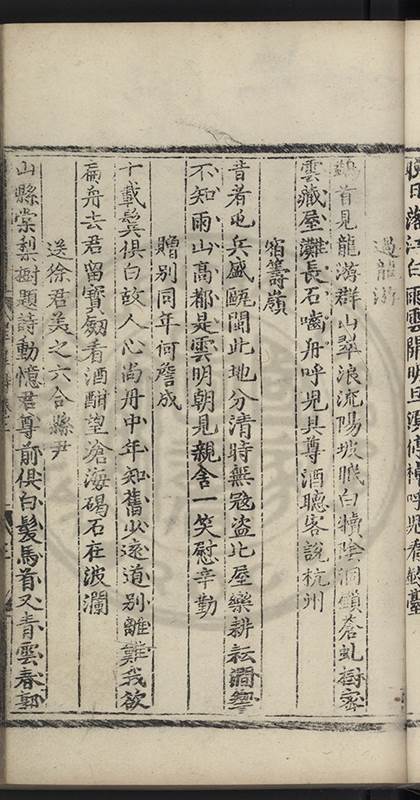 過龍游
鷁首見龍游群山翠浪流陽坡眠白犢陰洞鎖蒼虬樹密
雲藏屋灘長石嚙舟呼兒具尊酒聽客說杭州
宿籌嶺
昔者屯兵盛甌閩此地分清時無寇盜比屋樂耕耘澗響
不知雨山高都是雲明朝見親舍一笑慰辛勤
贈別同年何成
十載鬢俱白故人心尚丹中年知舊少遠道別離難我欲
扁舟去君留寶劍看酒酣望滄海碣石在波瀾
送徐君美之六合縣尹
山縣棠梨樹題詩動憶君尊前俱白髮馬首又青雲春郭